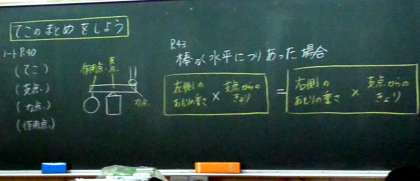 てこのまとめをしよう
ノートP.40
(てこ)
(支点)
(力点)
(作用点)
作用点
支点
力点
P.43
棒が水平につりあった場合
左側の
おもりの重さ
×
支点からの
きょり
=
右側の
おもりの重さ
×
支点からの
きょり